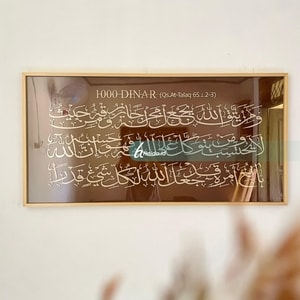 1000 DINAR (Qs.At-Talaq 65 : 2-3)
ومن يتق الله يجعل له مخرجا ويرزقه من حيث
لا يحتسب ومن يتوكل على الله فهو حسبه ان الله
بالغ امره قد جعل الله لكل شيء قدرا